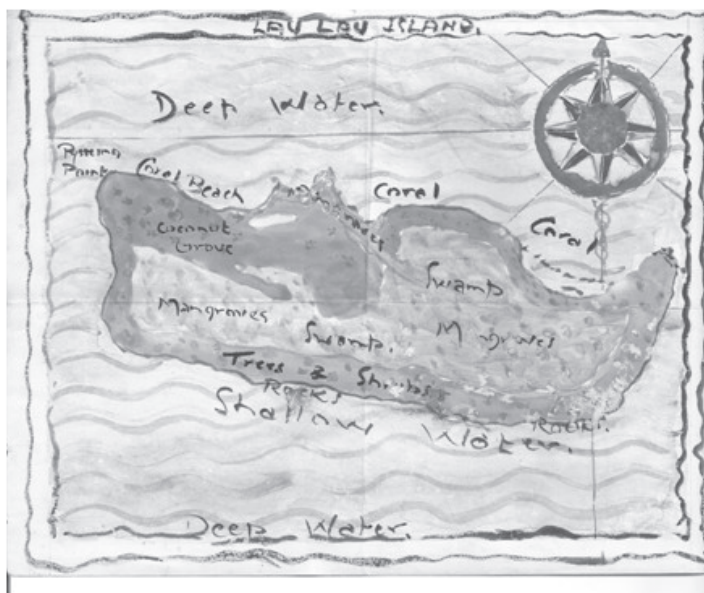 LAU LAU ISLAND.
Deep Water.
Point
Coral Beach
Mangroves
Coral
Coral
Coconut
Grove
Swamp
Mangroves
Swamp.
Mangroves
Trees & Shrubs
Rocks
Rocks.
Shallow Water.
Deep Water.